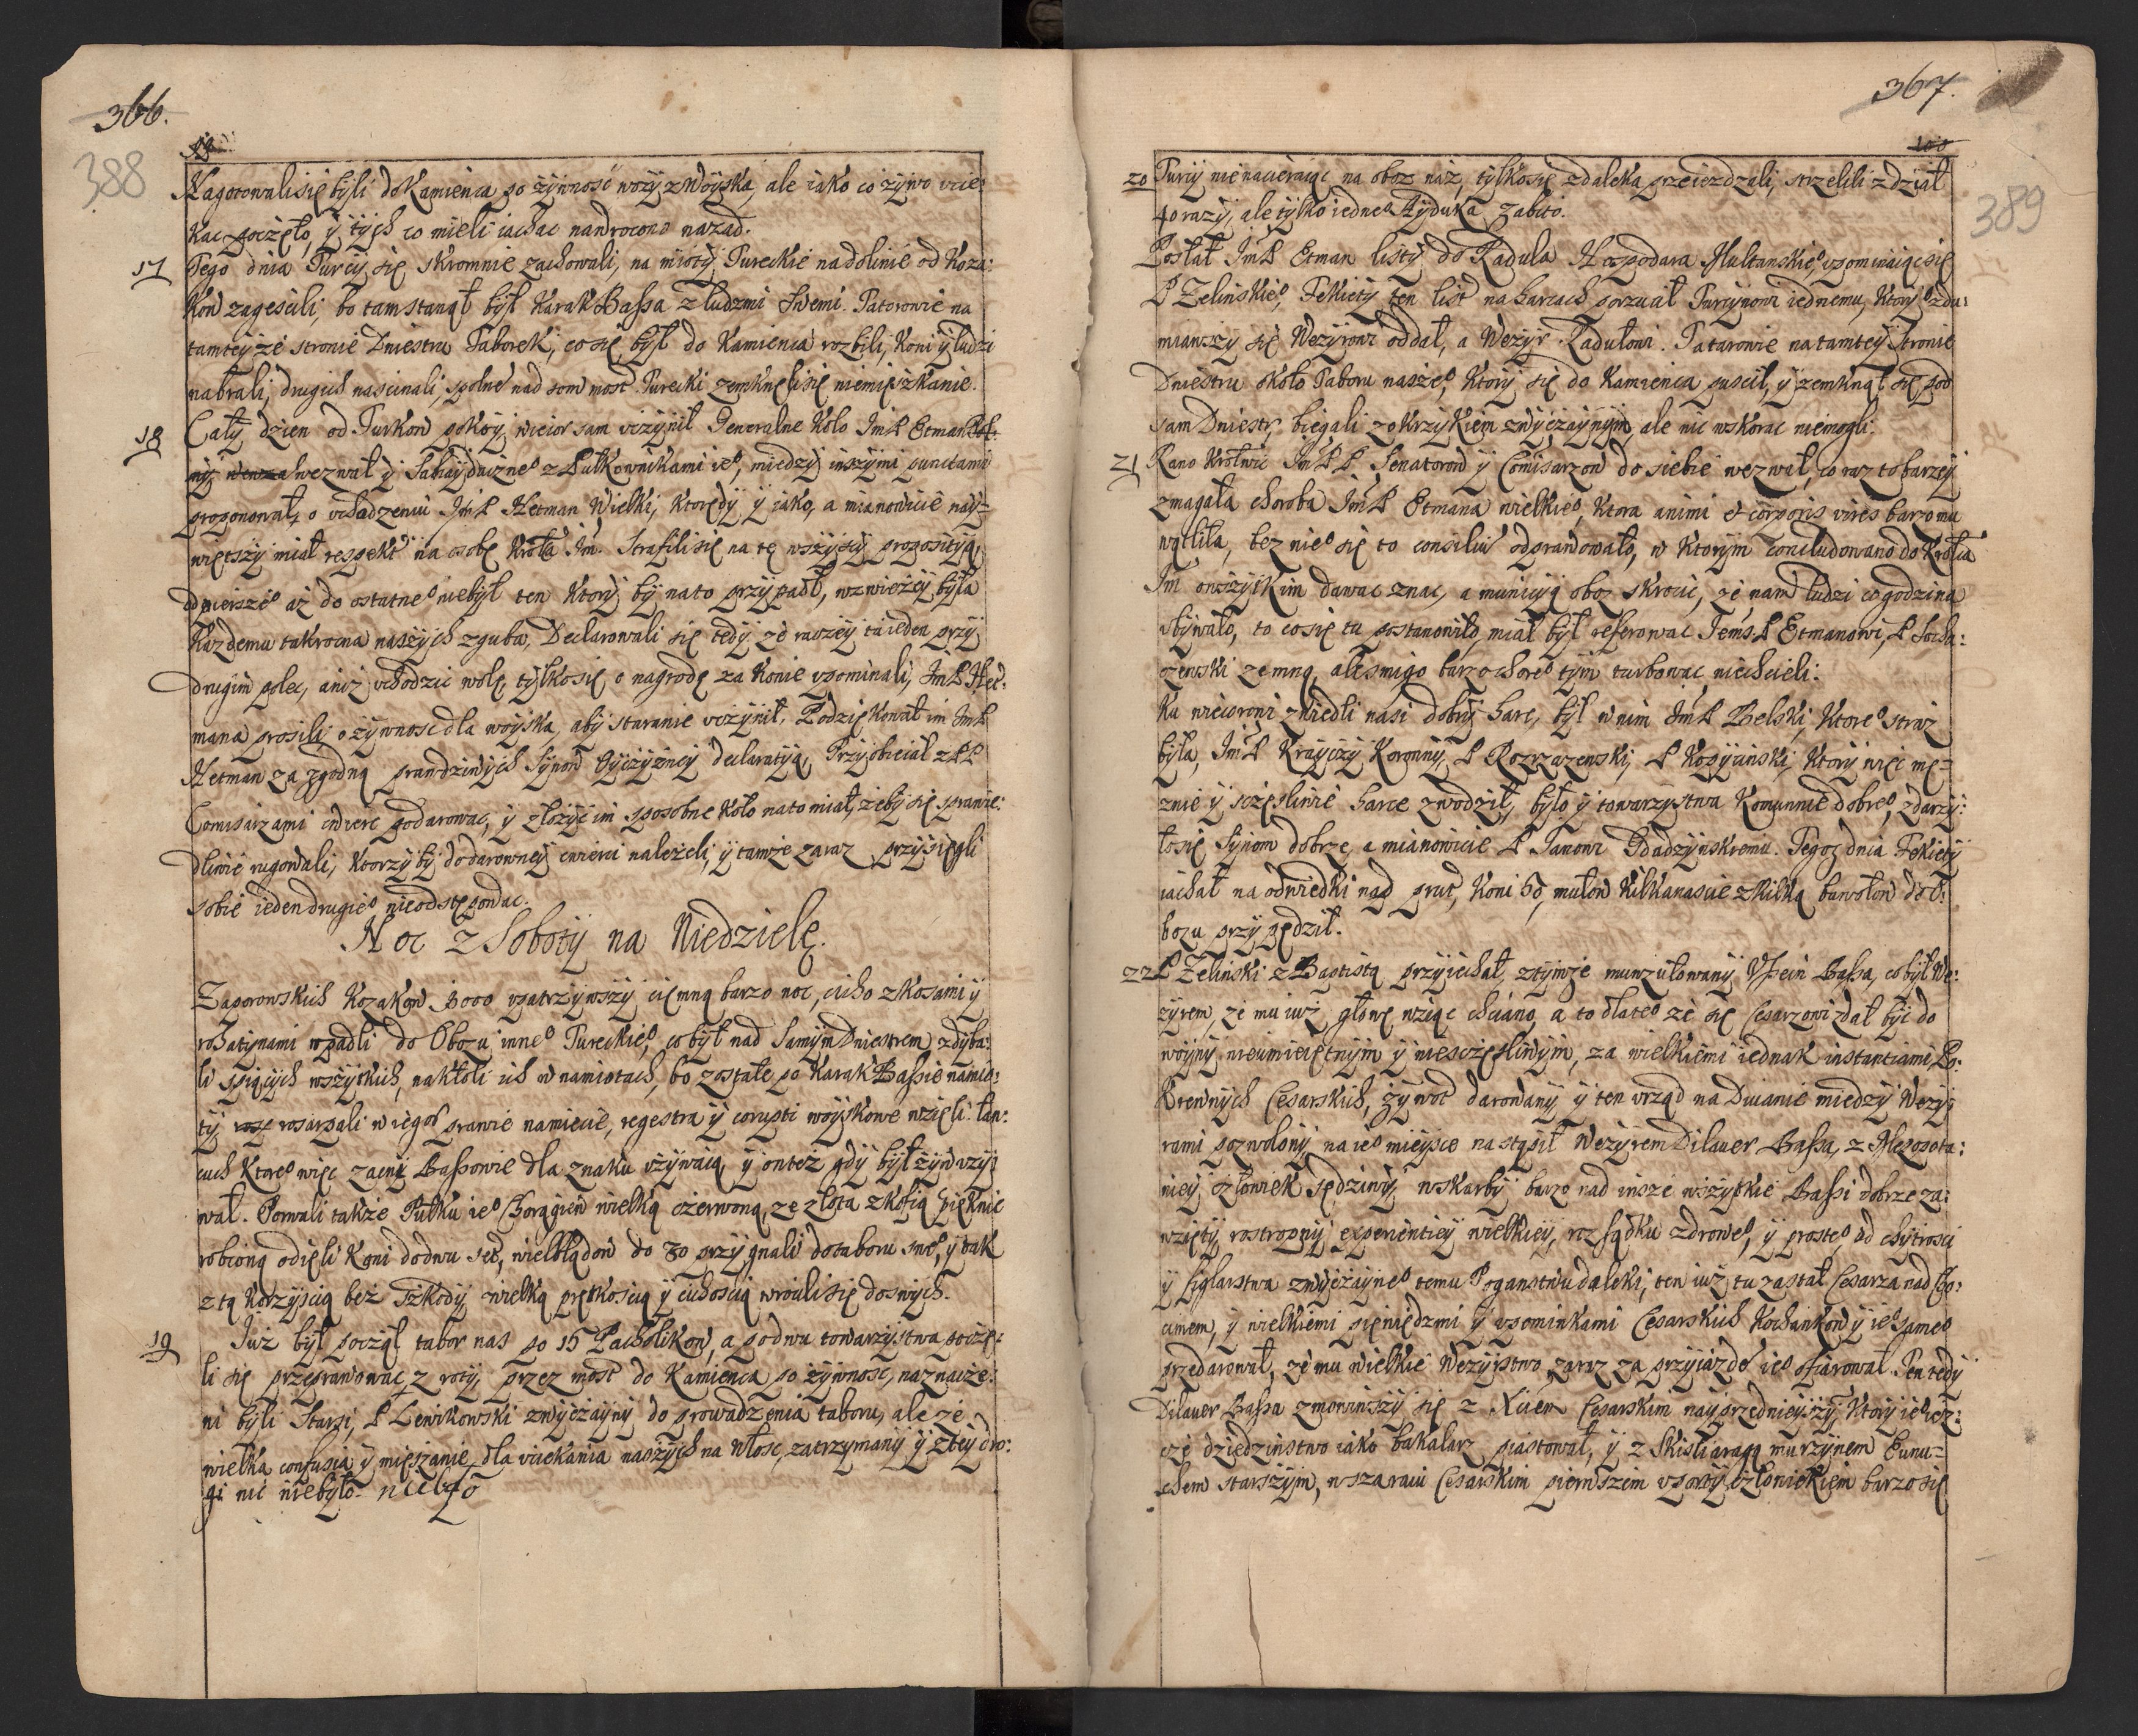 366.
388
Nagotowali się byli do Kamienca po żywnosć wozy z Woyska, ale iako co żywo vcie
kac poczęło, y tych co mieli iachac nawrocono nazad.
17 Tego dnia Turcy się skromnie zachowali, namioty Tureckie na dolinie od Koza:
kow zagescili, bo tam stanął był Karak Bassa z ludzmi swemi. Tatorowie na
tamtey ze stronie Dniestru Taborek, co się był do Kamienca rozbili, Koni y ludzi
nabrali, drugich nascinali, spolne nad som most Turecki zemknęli się niemięszkanie.
18 Cały dzien od Turkow pokoy, wieczor sam vczynił Generalne Koło Im P Etman Pol:
ny wezwał y Sahaydaczne° z Pułkownikami ie°, miedzy inszymi punctami
proponował, o vchodzeniu Im P Hetman Wielki, ktorędy y iako, a mianowicie nay=
większy miał respekt na osobę Krola Im. Strafili się na tę wszyscy propositią
od pierwsze° aż do ostatne° niebył ten ktory by na to przypadł, wzwieżcy była
Kazdemu takroczna naszych zguba, Declarowali się tedy, że raczey ta ieden przy
drugim polec, aniż vchodzić wolę, tylko się o nagrodę za Konie vpominali, Im P Het:
mana prosili, o żywnosc dla woyska, aby staranie vczynił. Podziękował im Im P
Hetman za zgodną prawdziwych Synow Oyczyzney declaratyą, Przyobiecał z PP
Comisarzami cwierc podarowac, y złożyć im sposobne Koło na to miał, żeby się sprawie:
dliwie rugowali, ktorzy by do darowney cwierci należeli, y tamże zaraz przysięgli
sobie ieden drugie° nieodstępowac.
Noc z Soboty na Niedzielę.
Zaporowskich Kozakow 3000 vpatrzywszy ciemną barzo noc, cicho z Kosami y
rohatynami wpadli do Obozu inne° Tureckie°, co był nad Samym Dniestrem zdyba:
li spiących wszytkich, nakłoli ich w namiotach, bo zostałe po Karak Bassie namio:
ty rosarpali w iegoż prawie namiecie, regestra y corupti woyskowe wzięli łan:
cuch Ktore° więc zacni Bassowie dla znaku vżywaią, y onteż gdy był żyw vży:
wał. Porwali także Pułku ie° Chorągiew wielką czerwoną, ze złota z Kofią pięknie
robioną odięli Koni do dwu set, wielbłądow do 30 przygnali do taboru swe°, y tak
z tą Korzyscią beż szkody wielką prętkoscią y cichoscią wrócili się do swych.
19 Już był począł tabor nas po 15 Pacholikow, a po dwu towarzystwa poczę:
li się przeprawowac, z roty, przez most do Kamienca po żywnosc, naznacze:
ni byli Starsi, P Lewikowski zwyczayny do prowadzenia taboru, ale że
wielka confusia y mięszanie, dla vciekania naszych na Włosc, zatrzymany y złey dro:
gi nic niebyło. niebyło
367.
389
20 Turcy nienacieraiąc na oboz nasz, tylko się zdaleka przeiezdzali, strzelili z dział
40 razy, ale tylko iedne° Ayduka zabito.
Posłał Im P Etman listy do Radula Hospodara Multanskie°, vpominaiąc się
P Zelinskie°, Fekiety ten list na harcach porzucił Turczynowi iednemu, ktory zdu:
miawszy się Wezyrowi oddał, a Wezyr Radułowi. Tatarowie na tamtey stronie
Dniestru około Taboru nasze°, ktory się do Kamienca puscił, y zemknął się pod
sam Dniestr, biegali z okrzykiem zwyczaynym, ale nic wskorac niemogli.
21 Rano Krolewic Im PP. Senatorow y Comisarzow do siebie wezwał, co raz to barzey
zmagała choroba Im P Etmana wielkie°, ktora animi et corporis vires barzo mu
wątliła, bez nie° się to consiliũ odprawowało, w ktorym concludowano do Krola
Im o wszytkim dawac znac, a municyą oboz skrocic, że nam ludzi co godzina
vbywało, to co się tu postanowiło, miał był referowac Temż P Etmanowi, P Socha:
czewski ze mną, alesmi go barzo chore° tym turbowac niechcieli.
Ku wieczorowi zwiedli nasi dobry harc, był w nim Im P Belski, Ktore° straz
była, Im P Krayczy Koronny, P Rozrazewski, P Kosycinski, Ktory więc mę=
znie y sczęsliwie harce zwodził, było y towarzystwa Komunnie dobre°, zdarzy:
ło się Synom dobrze, a mianowicie P Janowi Zdadzynskiemu. Tegoz dnia Fekiety
iachał na odwiedki nad prut, Koni 50, mułow Kilkanascie z Kilką bawołow do O:
bozu przypędził.
22 P Zelinski z Baptistą przyiechał, ztymże munzułowany Vssein Bassa, co był We:
zyrem, że mu iuż głowę wziąc chciano, a to dlate° że się Cesarzowi zdał być do
woyny nieumieiętnym y niesczęsliwym, za wielkiemi iednak instantiami, Po:
krewnych Cesarskich, żywot darowany y ten vrząd na Dwianie miedzy Wezy:
rami pozwolony, na ie° mieysce nastąpił Wezyrem Dilauer Bassa, z Mesopota:
miey człowiek sędziwy, w skarby barzo nad insze wszytkie Bassi dobrze za:
wzięty, rostropny, experientiey wielkiey, rozsądku zdrowe°, y proste° od chytrosci
y figlarstwa zwyczayne° temu Poganstwu daleki, ten iuż tu zastał Cesarza nad Cho:
cimem, y wielkiemi pieniędzmi y vpominkami Cesarskich Kochankow y ie° same°
przedarował, że mu wielkie Wezyrstwo zaraz za przyiazde ie° ofiarował. Ten tedy
Dilauer Bassa zmowiwszy się z Xiciem Cesarskim nayprzednieyszym, ktory ie° iesz:
cze dziedzinstwo iako bakalarz piastował, y z Skisliaragą murzynem Eunu=
chem starszym, w szaraiu Cesarskim pierwszem vporzy człowiekiem barzo się